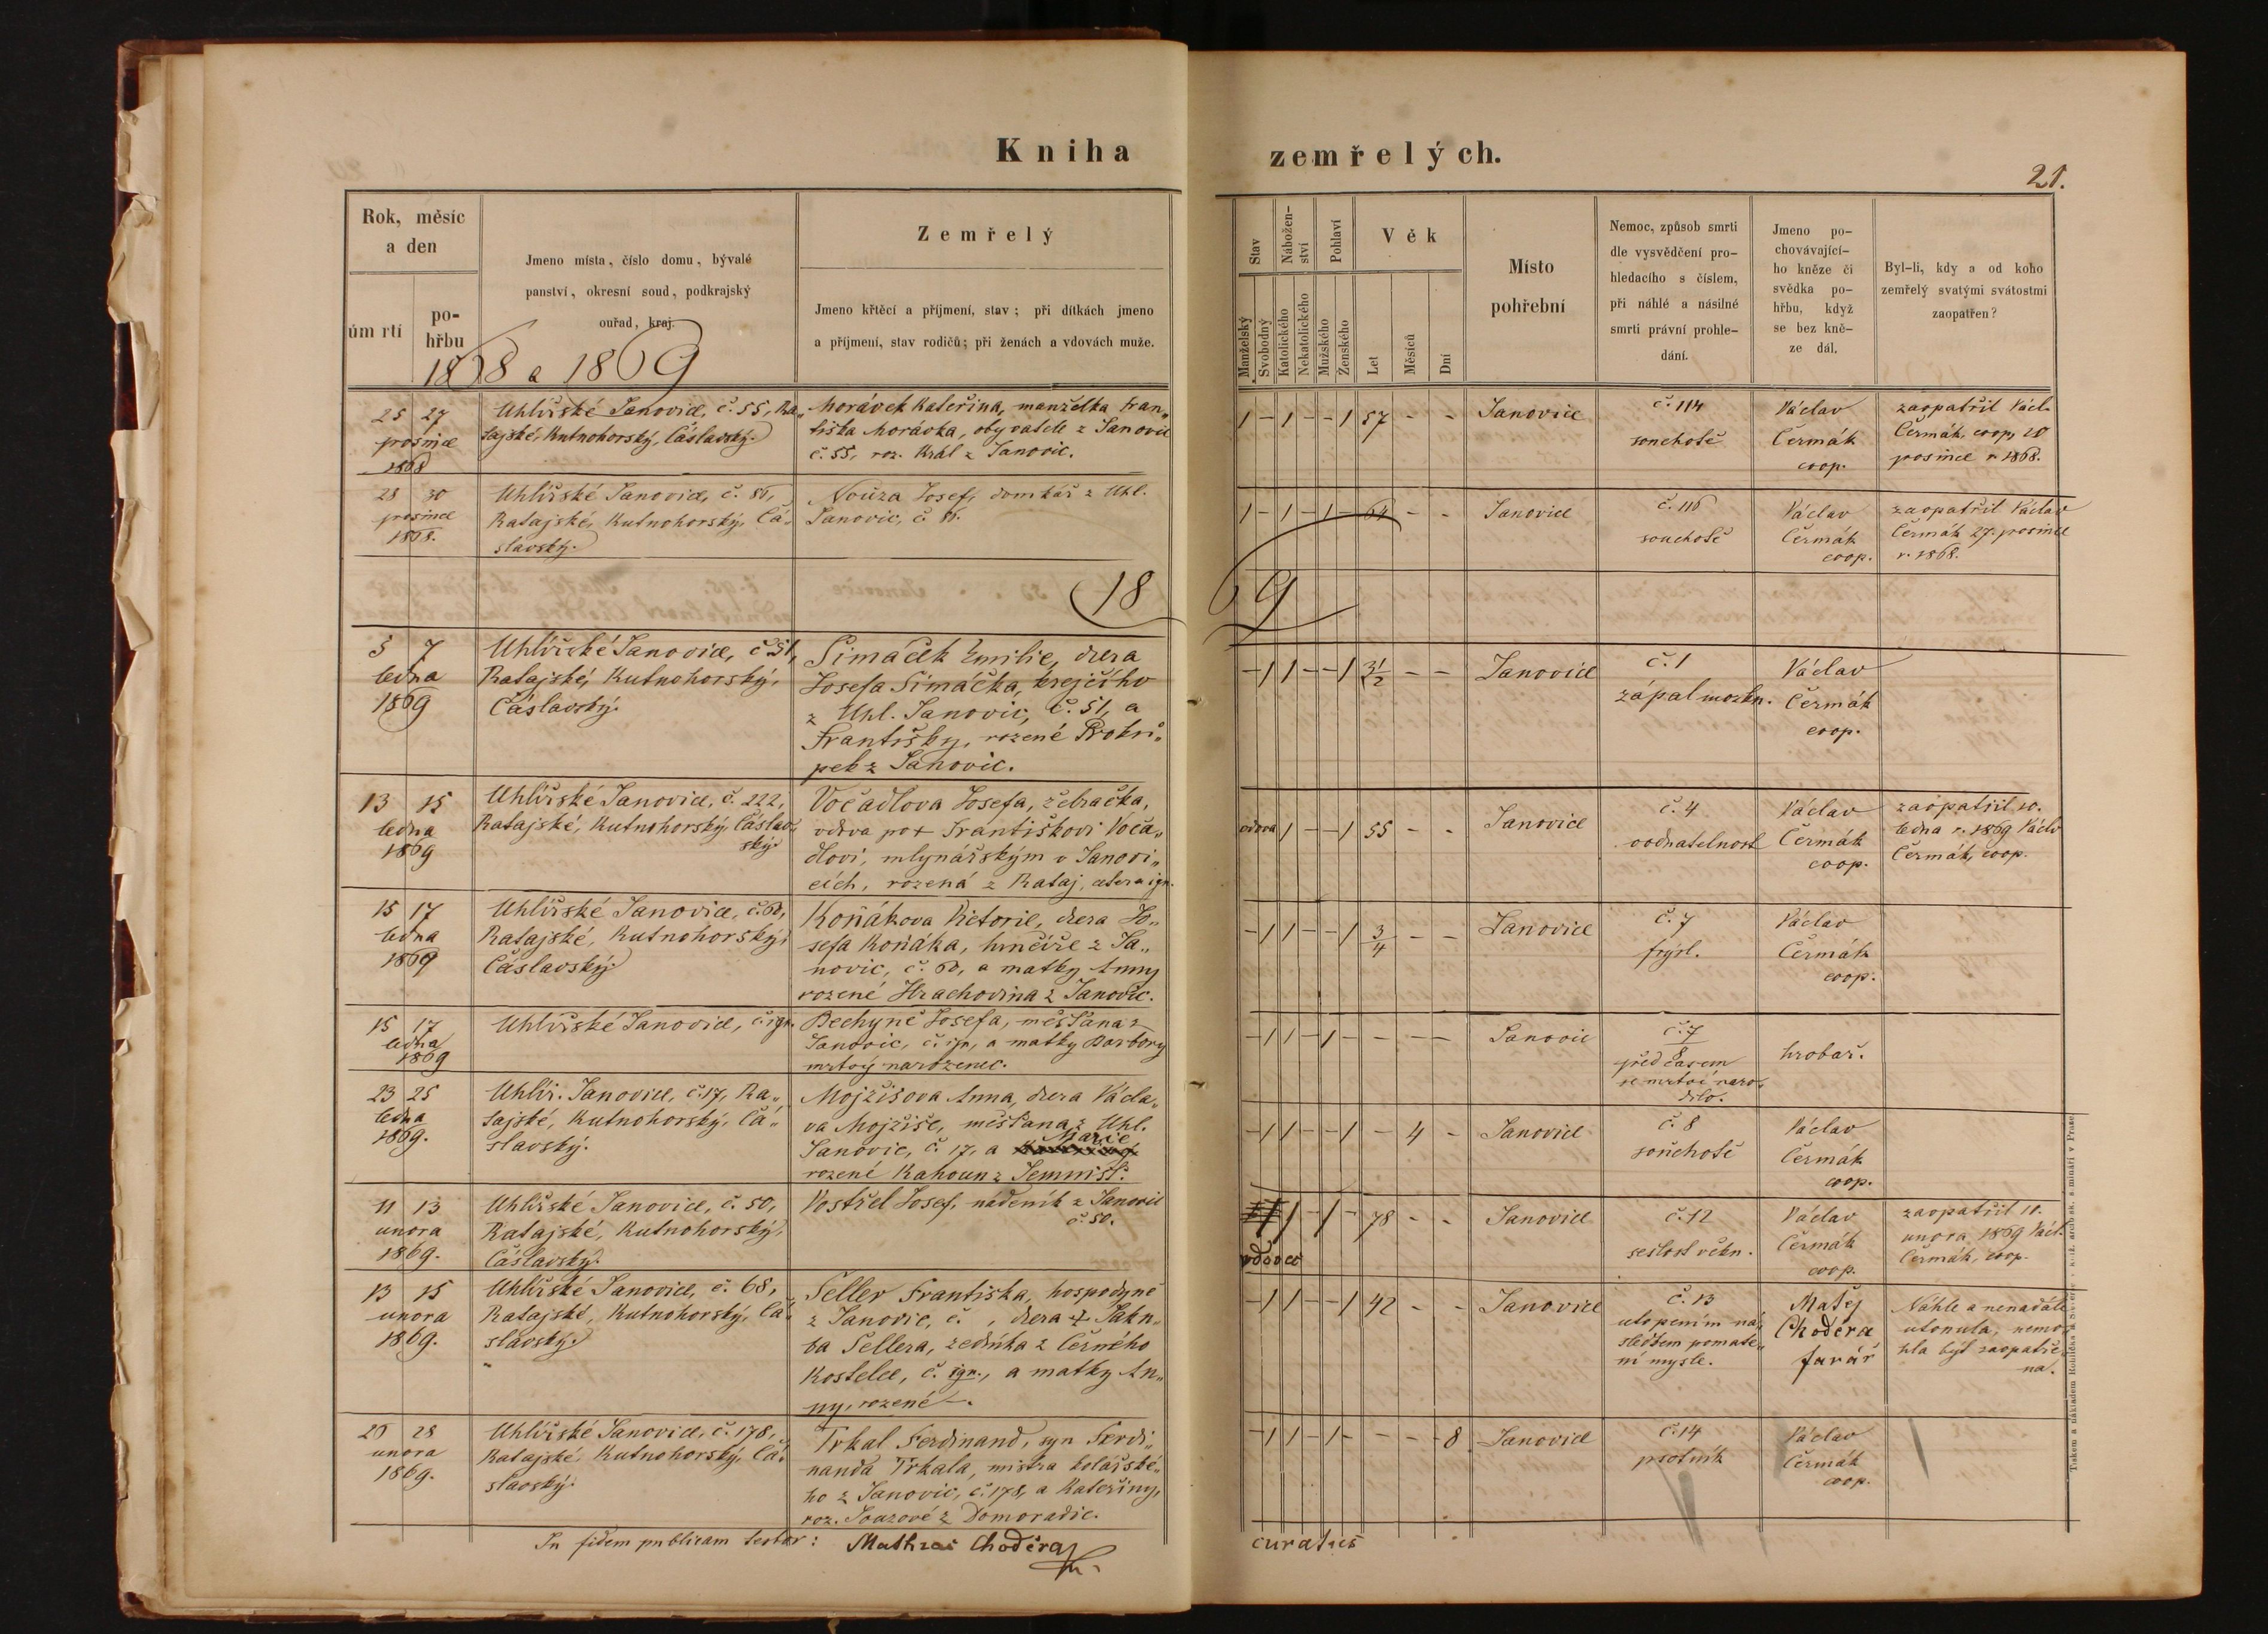 Kniha zemřelých.
21.
Rok, měsíc
a den
úmrtí
po-
hřbu
Jmeno místa, číslo domu, bývalé
panství, okresní soud, podkrajský
ouřad, kraj.
1868 a 1869
Zemřelý
Jmeno křtěcí a příjmení, stav; při dítkách jmeno
a příjmení, stav rodičů; při ženách a vdovách muže.
Stav
Manželský
Svobodný
Nábožen-
ství
Katolického
Nekatolického
Pohlaví
Mužského
Ženského
Věk
Let
Měsíců
Dní
Místo
pohřební
Nemoc, způsob smrti
dle vysvědčení pro-
hledacího s číslem,
při náhlé a násilné
smrti právní prohle-
dání.
Jmeno po-
chovávající-
ho kněze či
svědka po-
hřbu, když
se bez kně-
ze dál.
Byl-li, kdy a od koho
zemřelý svatými svátostmi
zaopatřen?
25 27
prosince
1868
Uhlířské Janovice, č. 55, Ra„
tajské, Kutnohorský, Čáslavský.
Morávek Kateřina, manželka Fran„
tiška Morávka, obyvatele z Janovic
č. 55, roz. Král z Janovic.
1 - 1 - - 1 57 - -
Janovice
č. 114
souchotě
Václav
Čermák
coop.
zaopatřil Václ.
Čermák, coop, 20
prosince r. 1868.
28 30
prosince
1868.
Uhlířské Janovice, č. 86,
Ratajské, Kutnohorský, Čá„
slavský.
Nouza Josef, domkář z Uhl.
Janovic, č. 86.
1 - 1 - 1 - 64 - -
Janovice
č. 116
souchotě
Václav
Čermák
coop.
zaopatřil Václav
Čermák 27. prosince
r. 1868.
1869
5 7
ledna
1869
Uhlířské Janovice, č. 51,
Ratajské, Kutnohorský,
Čáslavský.
Simáček Emilie, dcera
Josefa Simáčka, krejčího
z Uhl. Janovic, č. 51, a
Františky, rozené Proků„
pek z Janovic.
- 1 1 - - 1 3½ - -
Janovice
č. 1
zápal mozku.
Václav
Čermák
coop.
13 15
ledna
1869
Uhlířské Janovice, č. 222,
Ratajské, Kutnohorský, Čáslav„
ský.
Vočadlova Josefa, žebračka,
vdova po + Františkovi Voča„
dlovi, mlynářským v Janovi„
cích, rozená z Rataj, cetera ign.
vdova 1 - - 1 55 - -
Janovice
č. 4
vodnatelnost
Václav
Čermák
coop.
zaopatřil 10.
ledna r. 1869 Václ.
Čermák, coop.
15 17
ledna
1869
Uhlířské Janovice, č. 60,
Ratajské, Kutnohorský,
Čáslavský.
Koňákova Victorie, dcera Jo„
sefa Koňáka, hrnčíře z Ja„
novic, č. 60, a matky Anny
rozené Hrachovina z Janovic.
- 1 1 - - 1 3/4 - -
Janovice
č. 7
frýsl.
Václav
Čermák
coop.
15 17
ledna
1869
Uhlířské Janovice, č. ign.
Bechyně Josefa, měšťana z
Janovic, č. ign, a matky Barbory
mrtvý narozenec.
- 1 1 - 1 - - - -
Janovic
č. 7
8
před časem
se mrtvé naro„
dilo.
hrobař.
23 25
ledna
1869.
Uhlíř. Janovice, č. 17, Ra„
tajské, Kutnohorský, Čá„
slavský.
Mojžišova Anna, dcera Václa„
va Mojžiše, měšťana z Uhl.
Marie
Janovic, č. 17, a
rozené Kahoun z Jemnišť.
- 1 1 - - 1 - 4 -
Janovice
č. 8
souchotě
Václav
Čermák
coop.
11 13
unora
1869.
Uhlířské Janovice, č. 50,
Ratajské, Kutnohorský,
Čáslavský.
Vostřel Josef, nádeník z Janovic
č. 50.
vdovec 1 - 1 - 78 - -
Janovice
č. 12
sešlost věkn.
Václav
Čermák
coop.
zaopatřil 10.
unora 1869 Václ.
Čermák, coop.
13 15
unora
1869.
Uhlířské Janovice, č. 68,
Ratajské, Kutnohorský, Čá„
slavský.
Seller Františka, hospodyně
z Janovic, č. , dcera + Jaku„
ba Sellera, zedníka z Černého
Kostelce, č. ign., a matky An„
ny, rozené —.
- 1 1 - - 1 42 - -
Janovice
č. 13
utopením ná„
sledkem pomate„
ní mysle.
Matěj
Choděra
farář
Náhle a nenadále
utonula, nemo„
hla být zaopatře„
na.
26 28
unora
1869.
Uhlířské Janovice, č. 178,
Ratajské, Kutnohorský, Čá„
slavský.
Trkal Ferdinand, syn Ferdi„
nanda Trkala, mistra kolářské„
ho z Janovic, č. 178, a Kateřiny,
roz. Souzové z Domoradic.
- 1 1 - 1 - - - 8
Janovice
č. 14
psotník
Václav
Čermák
coop.
In fidem publicam testor: Mathias Choděra
curatus
Tiskem a nákladem Rohlíčka & Sievers, k.-ž. arcib. sk. seminář v Praze